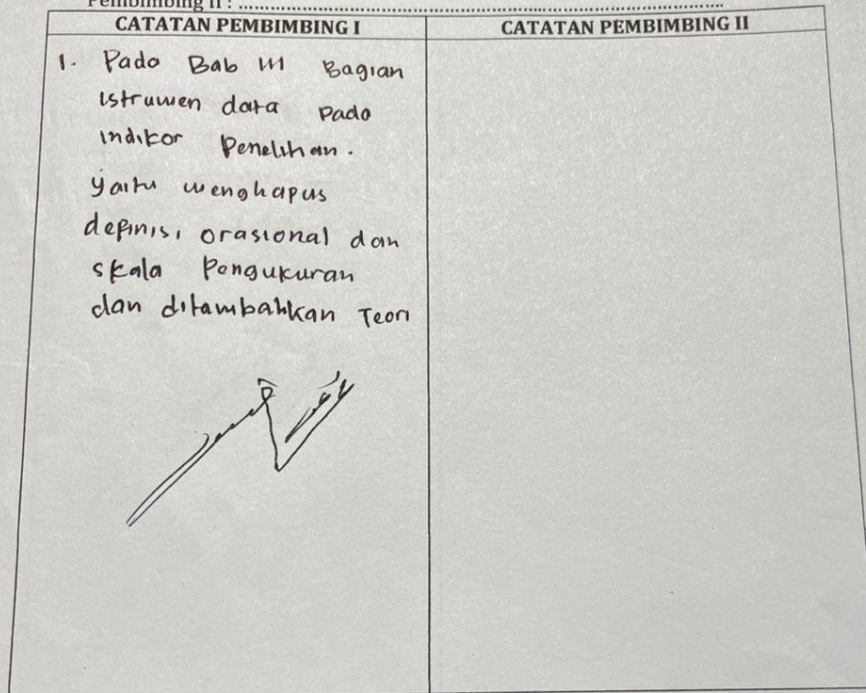 Pembimbing II : ................................................................
CATATAN PEMBIMBING I
CATATAN PEMBIMBING II
1. Pada Bab III Bagian
istrumen data pada
indikor Penelitian.
yaitu menghapus
definisi orasional dan
skala Pengukuran
dan ditambahkan Teori